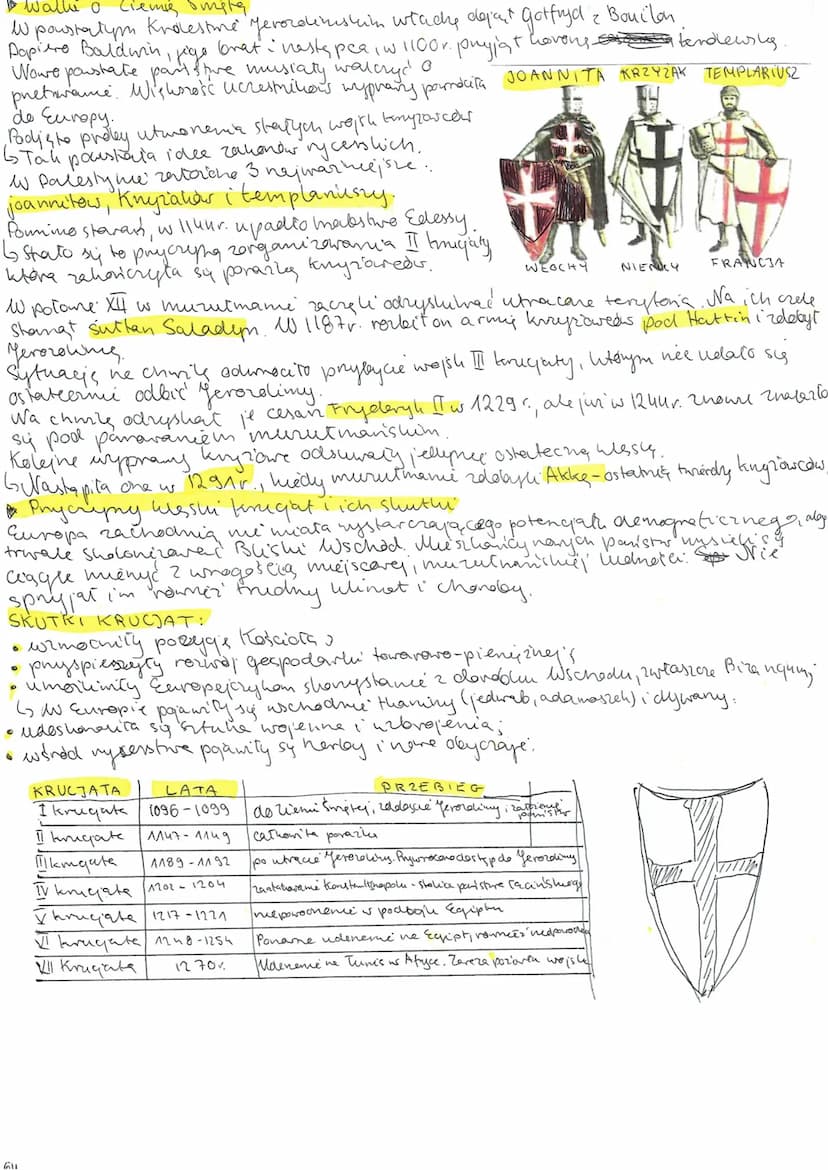 ▸ Walki o Ziemię Świętą
W powstałym Królestwie Jerozolimskim władzę objął Gotfryd z Bouilon.
Dopiero Baldwin, jego brat i następca, w 1100r. przyjął koronę królewską.
Nowo powstałe państwa musiały walczyć o
przetrwanie. Większość uczestników wyprawy powróciła
do Europy.
Podjęto próby utworzenia stałych wojsk krzyżowców
↳ Tak powstała idea zakonów rycerskich.
W Palestynie założono 3 najważniejsze:
joannitów, Krzyżaków i templariuszy.
Pomimo starań, w 1144r. upadło hrabstwo Edessy.
↳ Stało się to przyczyną zorganizowania II krucjaty,
która zakończyła się porażką krzyżowców.
JOANNITA KRZYŻAK TEMPLARIUSZ
WŁOCHY NIEMCY FRANCJA
W połowie XII w muzułmanie zaczęli odzyskiwać utracone terytoria. Na ich czele
stanął sułtan Saladyn. W 1187r. rozbił on armię krzyżowców pod Hattin i zdobył
Jerozolimę.
Sytuację na chwilę odwróciło przybycie wojsk III krucjaty, którym nie udało się
ostatecznie odbić Jerozolimy.
Na chwilę odzyskał je cesarz Fryderyk II w 1229r., ale już w 1244r. znowu znalazło
się pod panowaniem muzułmańskim.
Kolejne wyprawy krzyżowe odsuwały jedynie ostateczną klęskę.
↳ Nastąpiła ona w 1291r., kiedy muzułmanie zdobyli Akkę - ostatnią twierdzę krzyżowców.
▸ Przyczyny klęski krucjat i ich skutki
Europa zachodnia nie miała wystarczającego potencjału demograficznego, aby
trwale skolonizować Bliski Wschód. Mieszkańcy nowych państw musieli się
ciągle mierzyć z wrogością miejscowej, muzułmańskiej ludności. Nie
sprzyjał im również trudny klimat i choroby.
SKUTKI KRUCJAT:
• wzmocniły pozycję Kościoła;
• przyspieszyły rozwój gospodarki towarowo-pieniężnej;
• umożliwiły Europejczykom skorzystanie z dorobku Wschodu, zwłaszcza Bizancjum;
↳ W Europie pojawiły się wschodnie tkaniny (jedwab, adamaszek) i dywany.
• udoskonaliła się sztuka wojenna i uzbrojenia;
• wśród rycerstwa pojawiły się herby i nowe obyczaje.
KRUCJATA LATA PRZEBIEG
I krucjata 1096 - 1099 do Ziemi Świętej, zdobycie Jerozolimy, założenie państw
II krucjata 1147 - 1149 całkowita porażka
III krucjata 1189 - 1192 po utracie Jerozolimy. Przywrócono dostęp do Jerozolimy
IV krucjata 1202 - 1204 zaatakowanie Konstantynopola - stolica państwa Łacińskiego
V krucjata 1217 - 1221 niepowodzenie w podboju Egiptu
VI krucjata 1248 - 1254 Ponowne uderzenie na Egipt, również
VII Krucjata 1270r. Uderzenie na Tunis w Afryce. Zaraza wojska